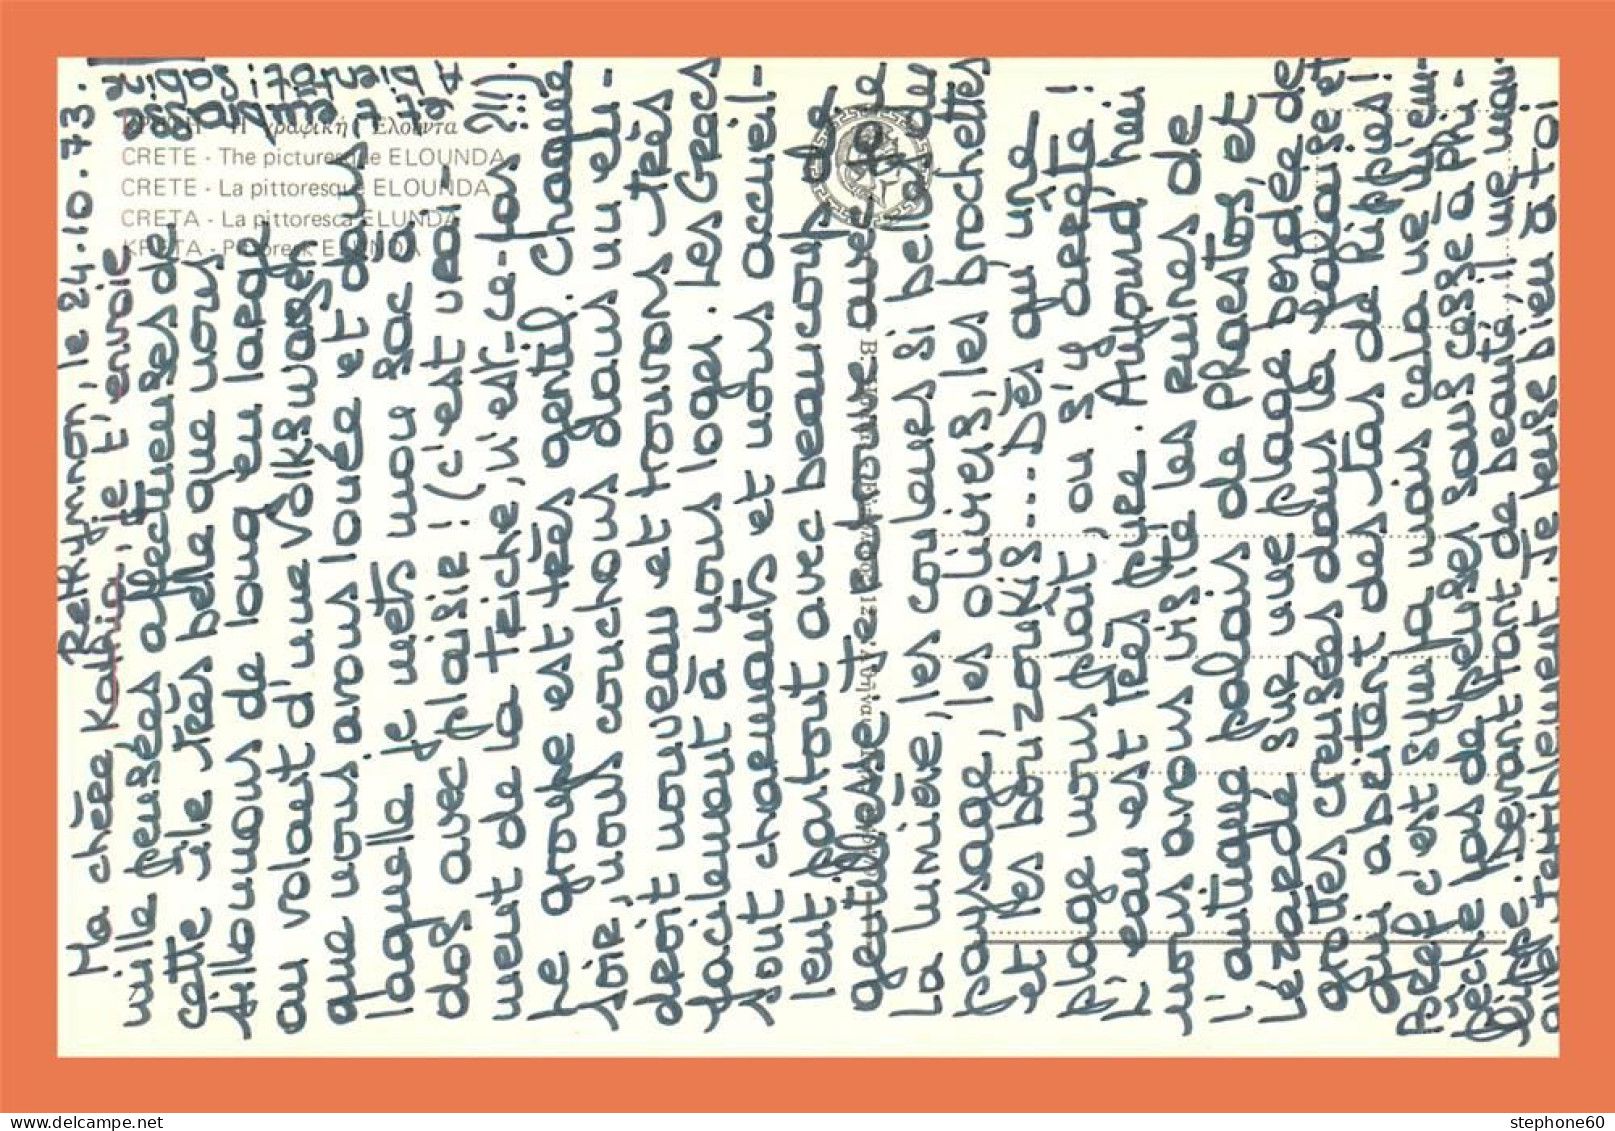 ΚΡΗΤΗ - Ἡ γραφική Ἐλούντα
CRETE - The picturesque ELOUNDA
CRETE - La pittoresque ELOUNDA
CRETA - La pittoresca ELUNDA
KRETA - Pittoresk ELUNDA
Rethymnon, le 24.10.73.
Ma chère Kathia, je t'envoie
mille pensées affectueuses de
cette île très belle que nous
sillonnons de long en large
au volant d'une Volkswagen
que nous avons louée et dans
laquelle je mets mon sac à
dos avec plaisir ! (c'est vrai-
ment de la triche, n'est-ce-pas ?!!).
Le groupe est très gentil. Chaque
soir, nous couchons dans un en-
droit nouveau et trouvons très
facilement à nous loger. Les Grecs
sont charmants et nous accueil-
lent partout avec beaucoup de
gentillesse et de bonne
La lumière, les couleurs si belles du
paysage, les oliviers, les brochettes
et les bouzoukis.... Dès qu'une
plage nous plaît, on s'y arrête !
L'eau est très pure. Aujourd'hui
nous avons visité les ruines de
l'antique palais de Phaestos, et
Lézardé sur une plage bordée de
grottes creusées dans la falaise et
qui abritent des tas de hippies !
Bref c'est sympa mais cela ne m'em-
pêche pas de penser sans cesse à Phi-
lippe. Devant tant de beauté, il me man-
que terriblement. Je pense bien à toi
et t'embrasse
A bientôt ! Sabine
stephone60